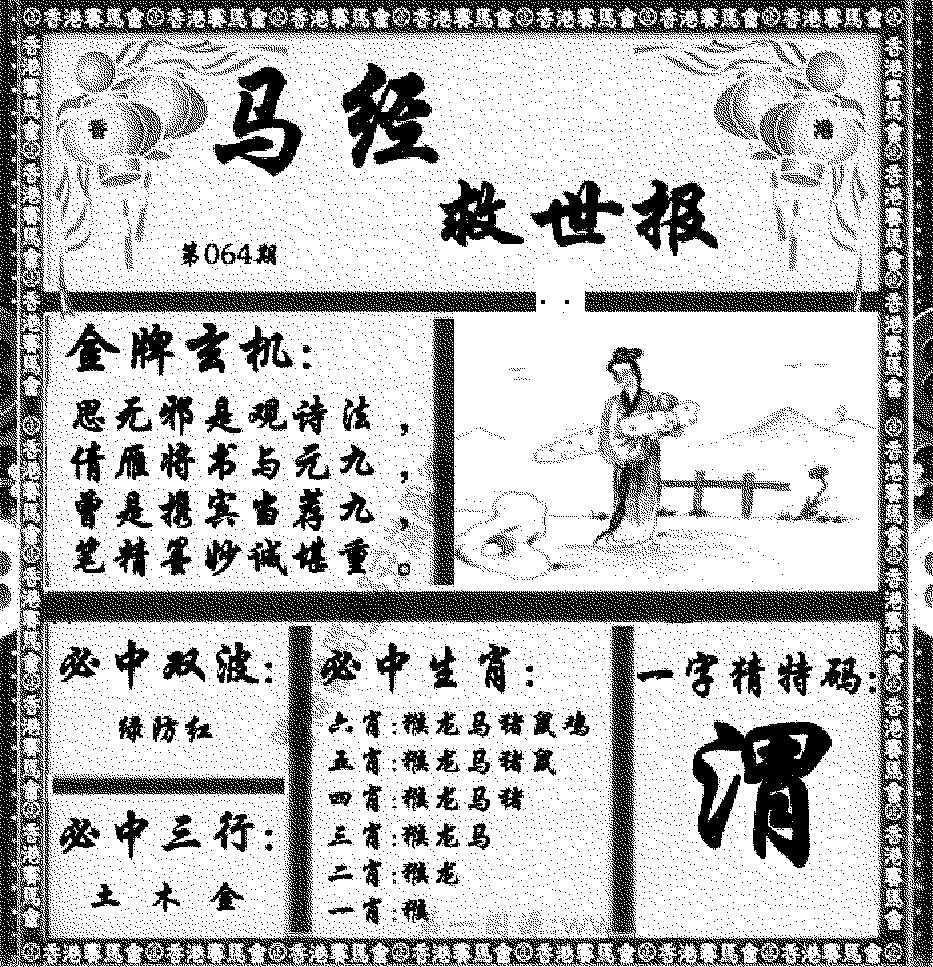 香港賽馬會 香港賽馬會 香港賽馬會 香港賽馬會 香港賽馬會 香港賽馬會 香港賽馬會
香
港
马经
救世报
第064期
金牌玄机:
思无邪是观诗法，
倩雁将书与元九，
曾是携宾当荐九，
笔精墨妙诚堪重。
必中双波:
绿防红
必中三行:
土 木 金
必中生肖:
六肖:猴龙马猪鼠鸡
五肖:猴龙马猪鼠
四肖:猴龙马猪
三肖:猴龙马
二肖:猴龙
一肖:猴
一字猜特码:
渭
香港賽馬會 香港賽馬會 香港賽馬會 香港賽馬會 香港賽馬會 香港賽馬會 香港賽馬會